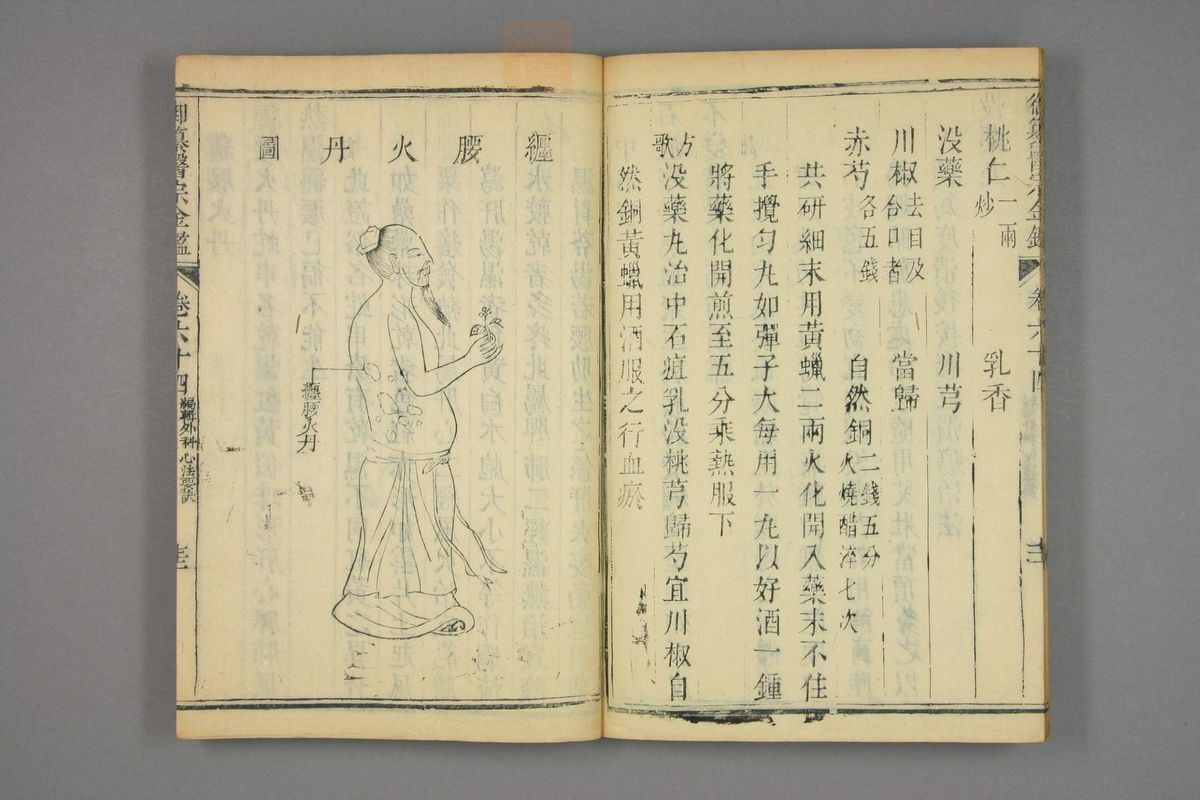 御纂醫宗金鑑
卷六十四
桃仁一兩炒 乳香
沒藥 川芎
川椒去目及合口者 當歸
赤芍各五錢 自然銅二錢五分火燒醋淬七次
共研細末用黃蠟二兩火化開入藥末不住
手攪勻丸如彈子大每用一丸以好酒一鍾
將藥化開煎至五分乘熱服下
方歌
沒藥丸治中石疽乳沒桃芎歸芍宜川椒自
然銅黃蠟用酒服之行血瘀
纏腰火丹圖
纏腰火丹
御纂醫宗金鑑
卷六十四
編輯外科心法要訣